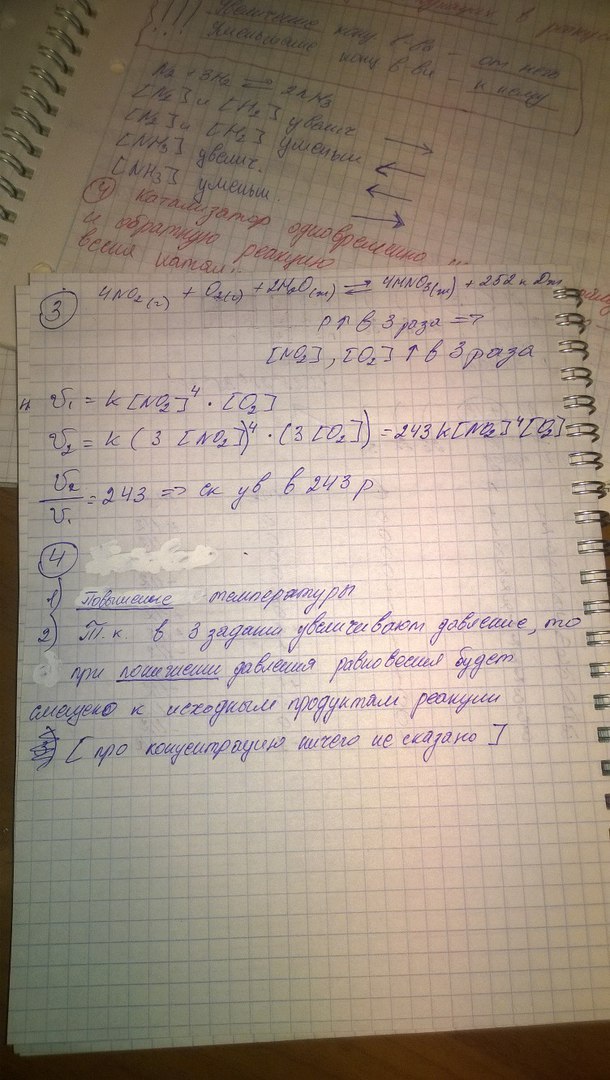 !!! Увеличение конц в-ва - от него
Уменьшение конц в-ва - к нему
N2 + 3H2 ⇌ 2NH3
[N2] и [H2] увелич. →
[N2] и [H2] уменьш ←
[NH3] увелич. ←
[NH3] уменьш. →
④ катализатор одновременно
и обратную реакцию
③ 4NO2(г) + O2(г) + 2H2O(ж) ⇌ 4HNO3(ж) + 252 кДж
P↑ в 3 раза =>
[NO2], [O2] ↑ в 3 раза
υ1 = k[NO2]^4 · [O2]
υ2 = k(3[NO2])^4 · (3[O2]) = 243k[NO2]^4[O2]
υ2/υ1 = 243 => ск ув в 243 р.
④
1) Повышение температуры
2) Т.к в 3 задании увеличивают давление, то
при понижении давления равновесия будет
смещено к исходным продуктам реакции
[про концентрацию ничего не сказано]